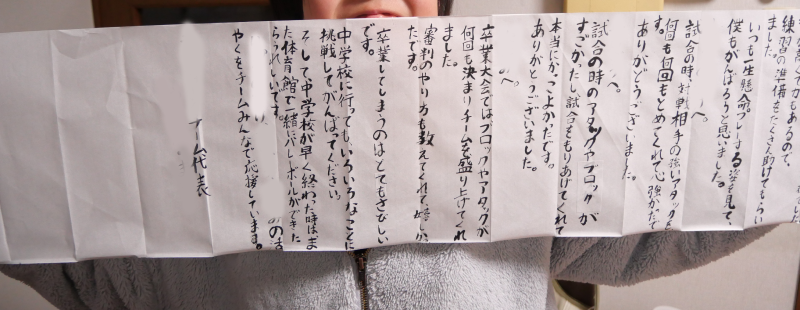 練習の準備もたくさん助けてもらい
ました。
いつも一生懸命プレーする姿を見て、
僕もがんばろうと思いました。
へ。
試合の時、対戦相手の強いアタックを
何回も何回もとめてくれて心強かったで
す。
ありがとうございました。
へ。
試合の時のアタックやブロックが
すごかったし、試合ももりあげてくれて
本当にかっこよかったです。
ありがとうございました。
へ。
卒業大会ではブロックやアタックが
何回も決まりチームを盛り上げてくれ
ました。
審判のやり方も教えてくれて嬉しかっ
たです。
卒業してしまうのはとてもさびしい
です。
中学校に行ってもいろいろなことに
挑戦してがんばってください。
そして中学校が早く終わった時は、ま
た体育館で一緒にバレーボールができた
らうれしいです。
のは
やくをチームみんなで応援しています。
ーム代表